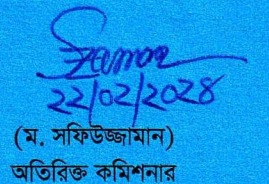 22/02/2028
(ম. সফিউজ্জামান)
অতিরিক্ত কমিশনার